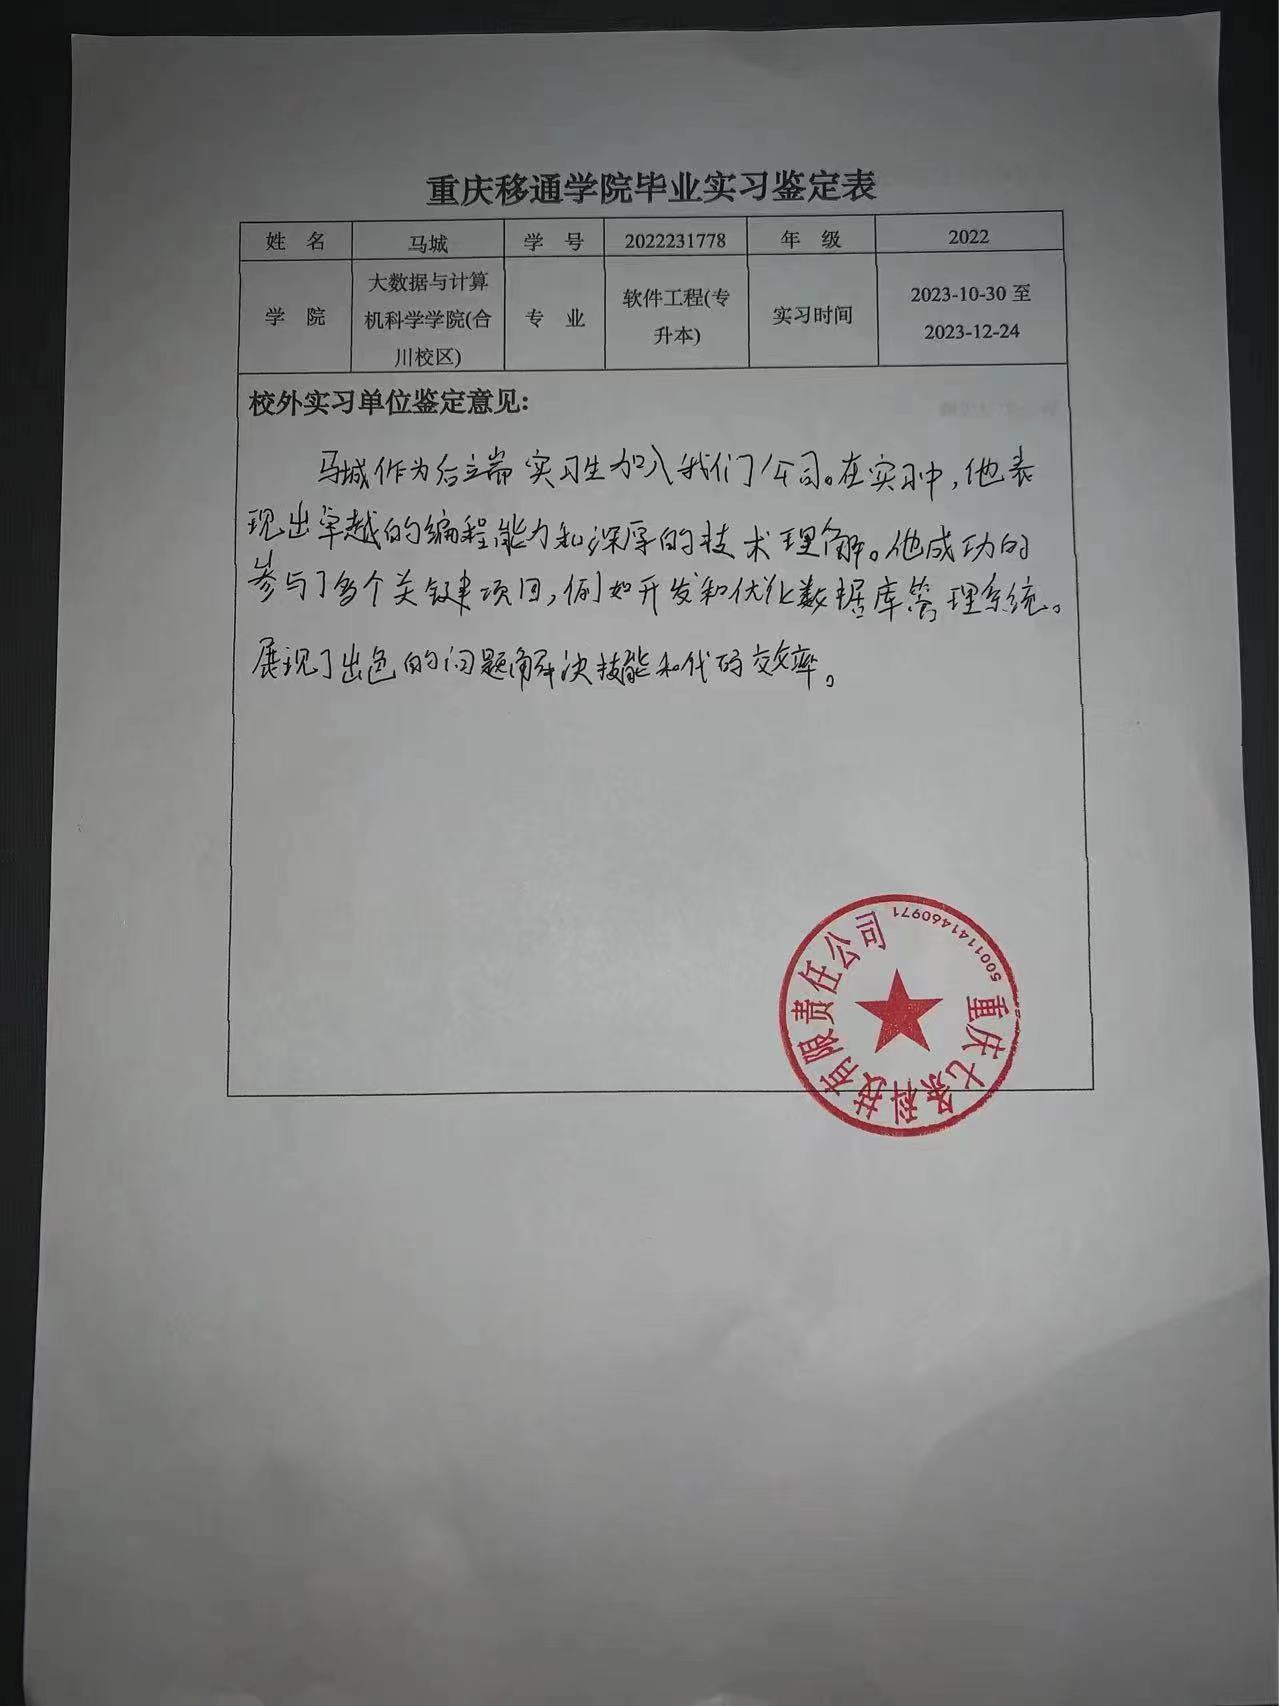 重庆移通学院毕业实习鉴定表
姓 名 马城 学 号 2022231778 年 级 2022
学 院 大数据与计算机科学学院(合川校区) 专 业 软件工程(专升本) 实习时间 2023-10-30 至 2023-12-24
校外实习单位鉴定意见:
马城作为后立端实习生加入我们公司。在实习中,他表
现出卓越的编程能力和深厚的技术理解。他成功的
参与了多个关键项目,例如开发和优化数据库管理系统。
展现了出色的问题解决技能和代码效率。
重庆七条科技有限责任公司
5001141460971